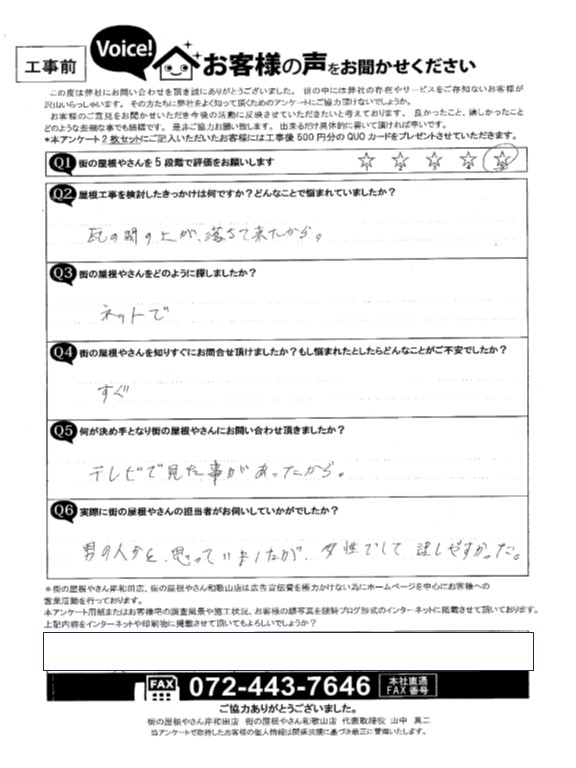 工事前
Voice!
お客様の声をお聞かせください
この度は弊社にお問い合わせを頂き誠にありがとうございました。世の中には弊社の存在やサービスをご存知ないお客様が
沢山いらっしゃいます。その方たちに弊社をよく知って頂くためのアンケートにご協力頂けないでしょうか。
お客様のご意見をお聞かせいただき今後の活動に反映させていただきたいと考えております。良かったこと、嬉しかったこと
どのような些細な事でも結構です。是非ご協力お願い致します。出来るだけ具体的に書いて頂ければ幸いです。
*本アンケート2枚セットにご記入いただいたお客様には工事後500円分のQUOカードをプレゼントさせていただきます。
Q1 街の屋根やさんを5段階で評価をお願いします ☆1 ☆2 ☆3 ☆4 ☆5
Q2 屋根工事を検討したきっかけは何ですか?どんなことで悩まれていましたか?
瓦の間の土が、落ちて来たから。
Q3 街の屋根やさんをどのように探しましたか?
ネットで
Q4 街の屋根やさんを知りすぐにお問合せ頂けましたか?もし悩まれたとしたらどんなことがご不安でしたか?
すぐ
Q5 何が決め手となり街の屋根やさんにお問い合わせ頂きましたか?
テレビで見た事があったから。
Q6 実際に街の屋根やさんの担当者がお伺いしていかがでしたか?
男の人かと、思っていましたが、女性でして話しやすかった。
*街の屋根やさん岸和田店、街の屋根やさん和歌山店は広告宣伝費を極力かけない為にホームページを中心にお客様への
営業活動を行っております。
本アンケート用紙またはお客様宅の調査風景や施工状況、お客様の顔写真を随時ブログ形式のインターネットに掲載させて頂いております。
上記内容をインターネットや印刷物に掲載させて頂いてもよろしいでしょうか?
FAX 072-443-7646 本社直通
FAX番号
ご協力ありがとうございました。
街の屋根やさん岸和田店 街の屋根やさん和歌山店 代表取締役 山中 真二
当アンケートで取得したお客様の個人情報は関係法規に基づき厳正に管理いたします。